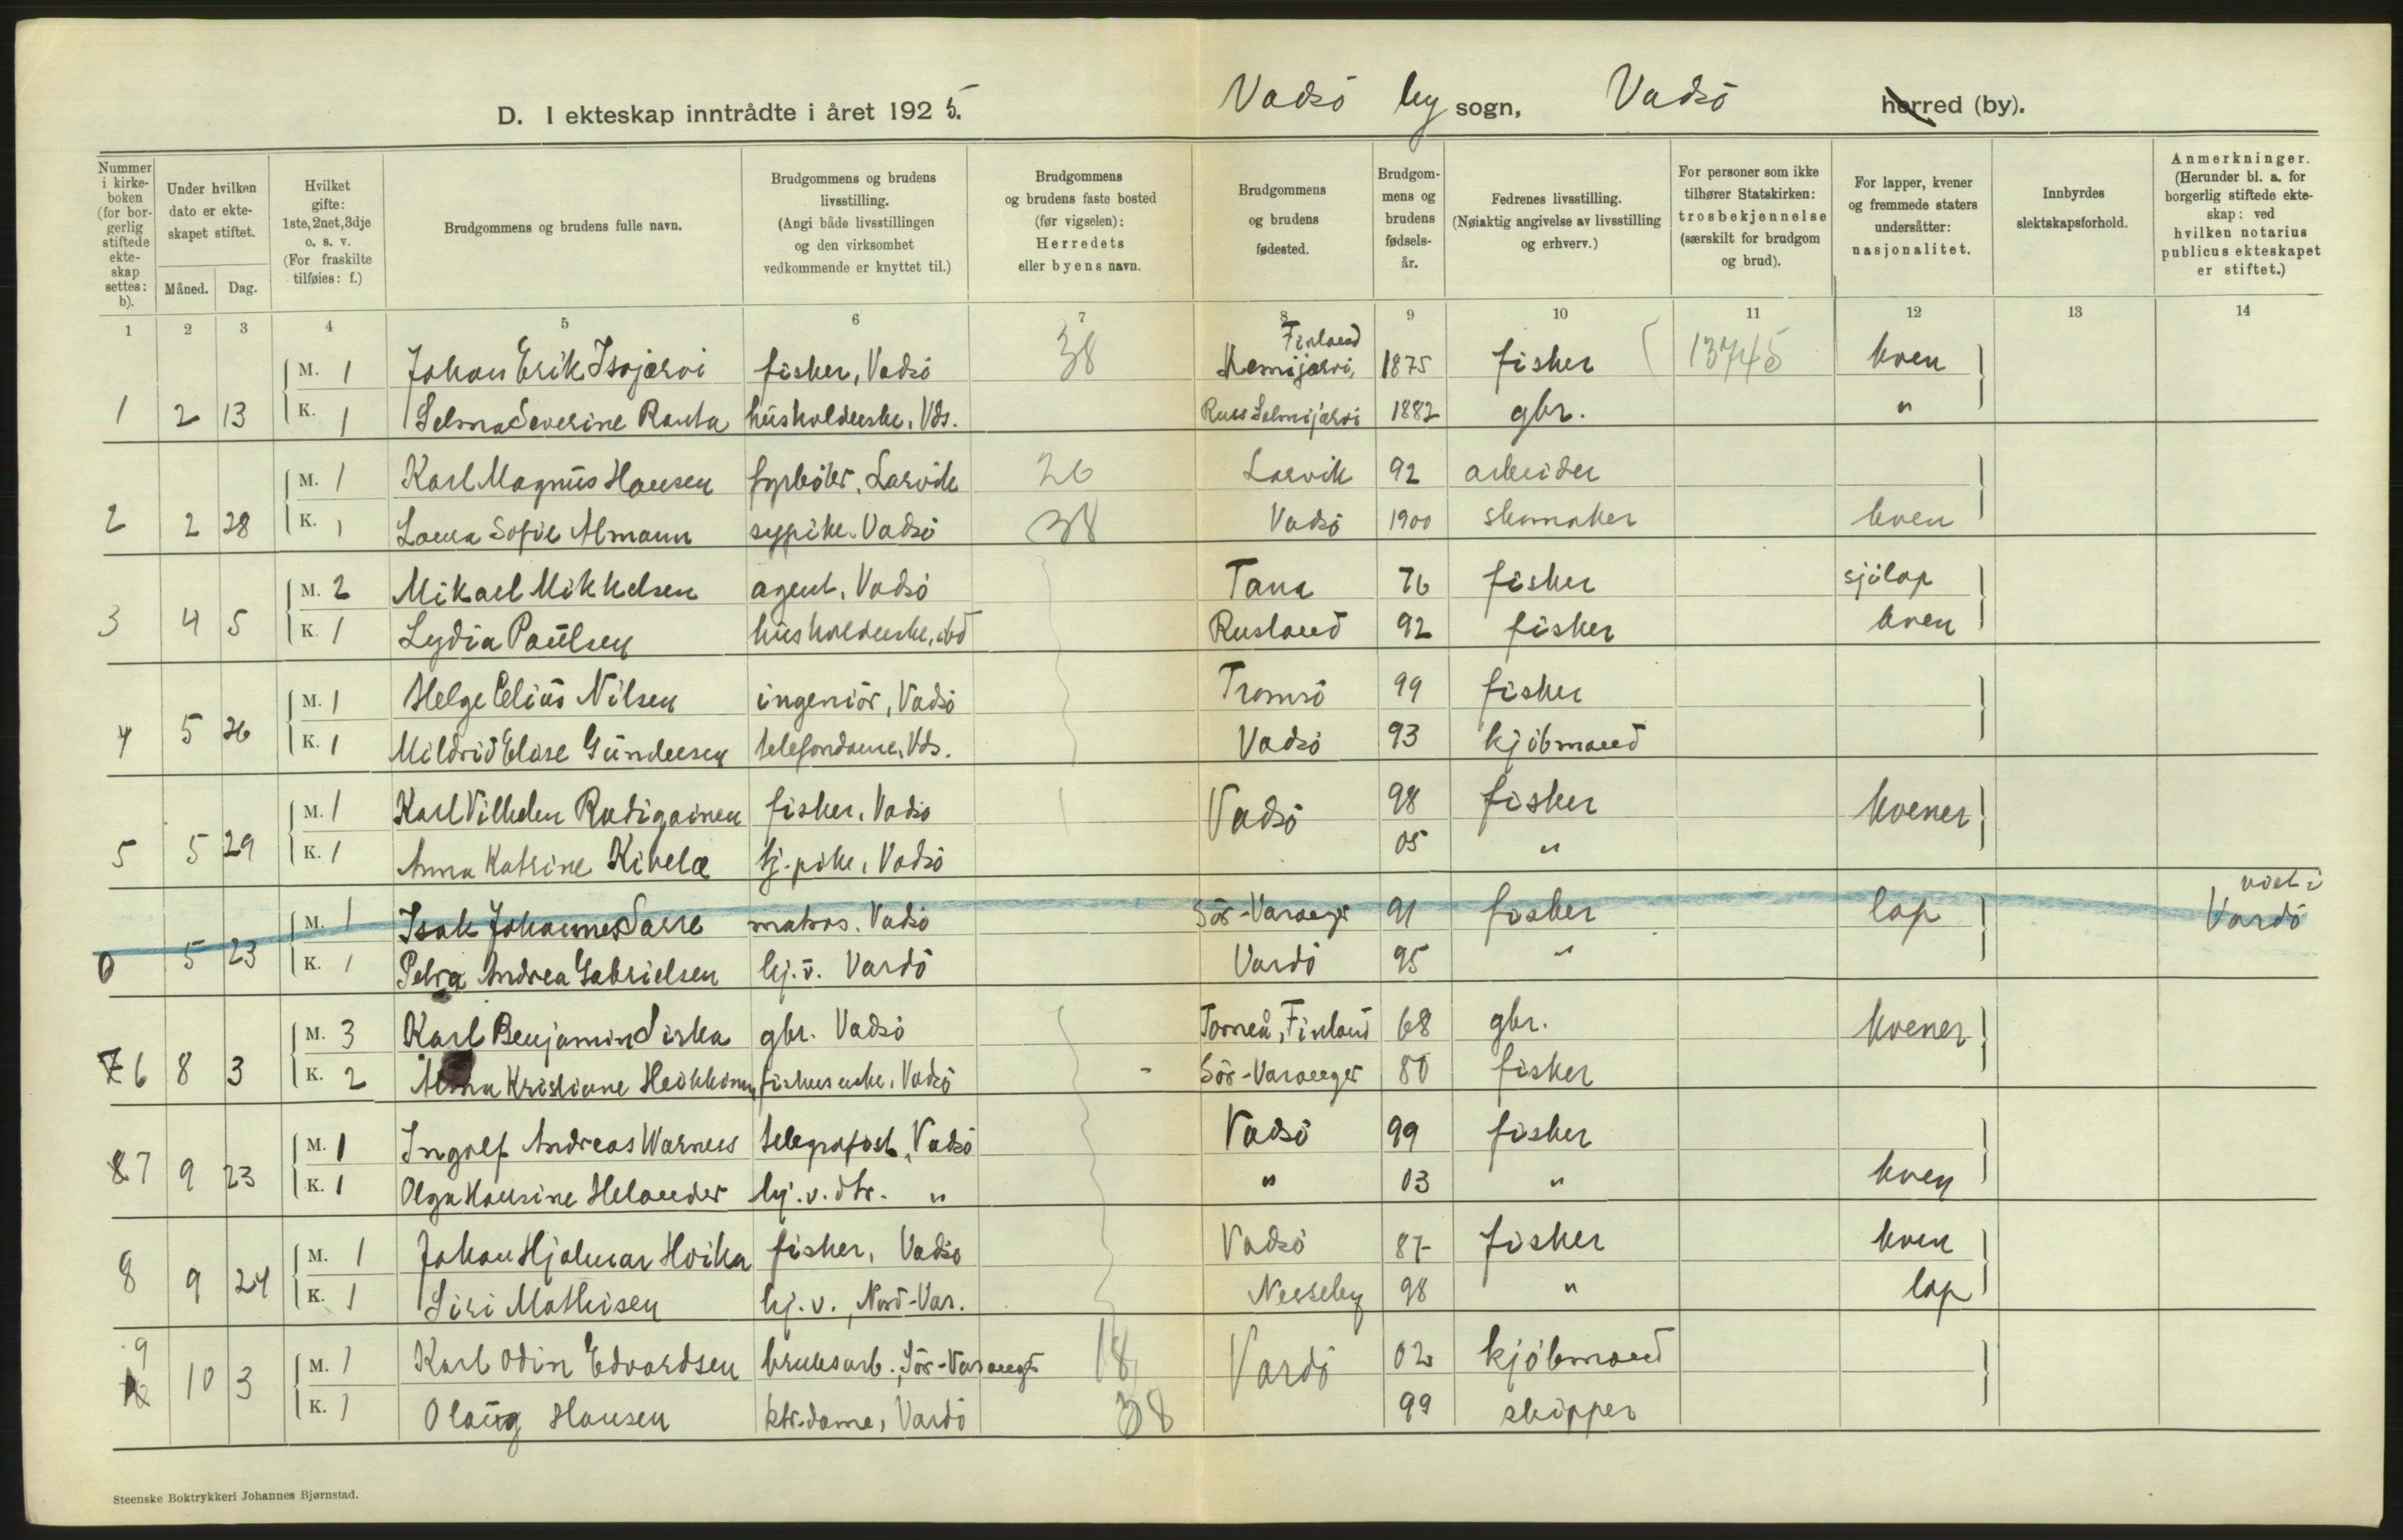 D. I ekteskap inntrådte i året 1925. Vadsö by sogn, Vadsö herred (by).
Nummer i kirkeboken (for borgerlig stiftede ekteskap settes: b).
Under hvilken dato er ekteskapet stiftet.
Måned. Dag.
Hvilket gifte: 1ste, 2net, 3dje o. s. v. (For fraskilte tilføies: f.)
Brudgommens og brudens fulle navn.
Brudgommens og brudens livsstilling. (Angi både livsstillingen og den virksomhet vedkommende er knyttet til.)
Brudgommens og brudens faste bosted (før vigselen): Herredets eller byens navn.
Brudgommens og brudens fødested.
Brudgommens og brudens fødselsår.
Fedrenes livsstilling. (Nøiaktig angivelse av livsstilling og erhverv.)
For personer som ikke tilhører Statskirken: trosbekjennelse (særskilt for brudgom og brud).
For lapper, kvener og fremmede staters undersåtter: nasjonalitet.
Innbyrdes slektskapsforhold.
Anmerkninger. (Herunder bl. a. for borgerlig stiftede ekteskap: ved hvilken notarius publicus ekteskapet er stiftet.)
1 2 3 4 5 6 7 8 9 10 11 12 13 14
M. 1 Johan Erik Isojærvi fisker, Vadsö 38 Kemijærvi, Finland 1875 fisker 13745 kven
1 2 13 K. 1 Selma Severine Rauta husholderske, Vds. Russ Salmijærvi 1882 gbr. "
M. 1 Karl Magnus Hansen fyrböter, Larvik 26 Larvik 92 arbeider
2 2 28 K. 1 Laura Sofie Almann sypike, Vadsö 38 Vadsö 1900 skomaker kven
M. 2 Mikael Mikkelsen agent, Vadsö Tana 76 fisker sjölap
3 4 5 K. 1 Lydia Paulsen husholderske, ibd Rusland 92 fisker kven
M. 1 Helge Elias Nilsen ingeniör, Vadsö Tromsö 99 fisker
4 5 26 K. 1 Mildrid Elise Gundersen telefondame, Vds. Vadsö 93 kjöbmand
M. 1 Karl Vilhelm Radigainen fisker, Vadsö Vadsö 98 fisker kvener
5 5 29 K. 1 Anna Katrine Kivelæ tj.pike, Vadsö 05 "
M. 1 Isak Johannes Sarre matros, Vadsö Sör-Varanger 91 fisker lap viet i Vardö
0 5 23 K. 1 Petra Andrea Gabrielsen hj.v. Vardö Vardö 95 "
M. 3 Karl Benjamin Sirka gbr. Vadsö Torneå, Finland 68 gbr. kvener
7 6 8 3 K. 2 Anna Kristiane Heikkinen fiskerenke, Vadsö Sör-Varanger 80 fisker
M. 1 Ingolf Andreas Warness telegrafist, Vadsö Vadsö 99 fisker
8 7 9 23 K. 1 Olga Hansine Helander hj.v.dtr. " " 03 " kven
M. 1 Johan Hjalmar Hoika fisker, Vadsö Vadsö 87 fisker kven
8 9 24 K. 1 Siri Mathisen hj.v., Nord-Var. Nesseby 98 " lap
9 10 3 M. 1 Karl Odin Edvardsen bruksarb., Sör-Varanger 18 Vardö 02 kjöbmand
K. 1 Olaug Hansen ktr.dame, Vardö 38 99 skipper
Steenske Boktrykkeri Johannes Bjørnstad.